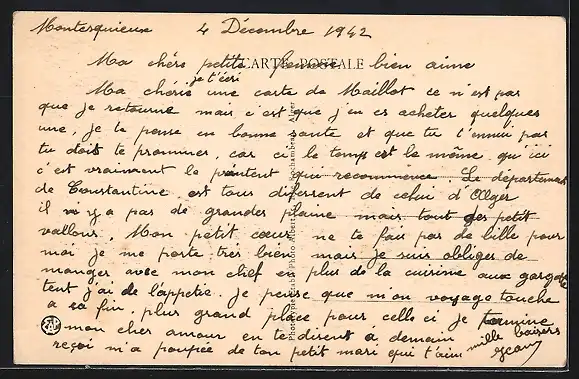 Montesquieux 4 Décembre 1942
CARTE POSTALE
Ma chére petite femme bien aimé
je t'écri
Ma chérie une carte de Maillot ce n'est pas
que je retourne mais c'est que j'en es acheter quelques
une, je te pense en bonne sante et que tu t'ennui pas
tu doit te promener, car ce le temps est le même qu'ici
c'est vraiment le printent qui recommence Le département
de Constantine est tous different de celui d'Alger
il n'y a pas de grandes plaine mais tout des petit
vallons, Mon petit cœur ne te fais pas de bille pour
moi je me porte tres bien mais je suis obliger de
manger avec mon chef en plus de la cuisine aux gargote
tent j'ai de l'appetie. Je pense que mon voyage touche
a sa fin, plus grand place pour celle ci je termine
mon cher amour en te disent á demain mille baisers
reçoi m'a poupée de ton petit mari qui t'aim